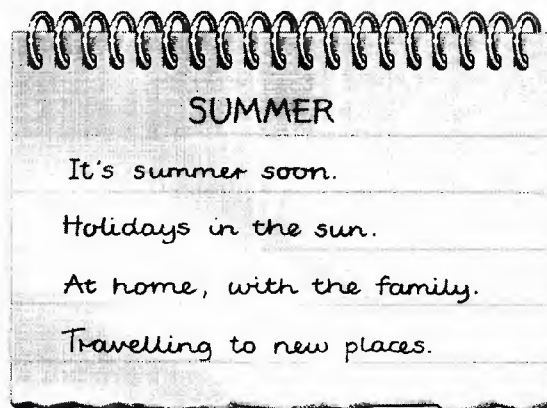 SUMMER
It's summer soon.
Holidays in the sun.
At home, with the family.
Travelling to new places.